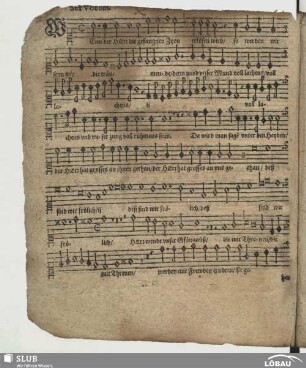 Enn der HErr die gefangnen Zion erlösen wird/ so werden wir
sein wie die träu- men- de/ denn wird vnser Mund voll lachens/ voll
la- chens/ ij voll la-
chens vnd vnser zung voll rühmens sein. Da wird man sagn vnter den Heyden/
der HErr hat grosses an jhnen gethan/ der HErr hat grosses an vns ge- than/ deß
sind wir frölich/ deß sind wir frö- lich/ deß sind wir
frö- lich/ HErr wende vnser die mit Threnen/ die
mit Threnen/ werden mit Frewden
SLUB
Wir führen Wissen.
LÖBAU